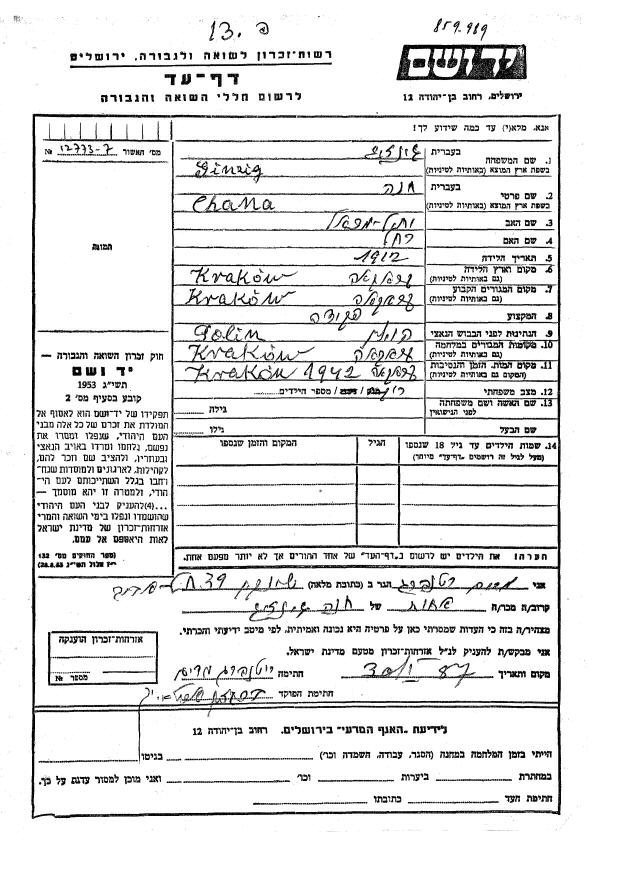 859-989
יד ושם
ירושלים, רחוב בן-יהודה 12
רשות-זכרון לשואה ולגבורה, ירושלים
דף-עד
לרשום חללי השואה והגבורה
אנא, מלא(י) עד כמה שידוע לך!
מס' האשור 12773-7 №
תמונה
1. שם המשפחה בעברית גינציג
בשפת ארץ המוצא (באותיות לטיניות) Ginzig
2. שם פרטי בעברית חנה
בשפת ארץ המוצא (באותיות לטיניות) Chana
3. שם האב
4. שם האם רחל
5. תאריך הלידה 1912
6. מקום וארץ הלידה (גם באותיות לטיניות) Kraków
7. מקום המגורים הקבוע (גם באותיות לטיניות) Kraków
8. המקצוע פקידה
9. הנתינות לפני הכבוש הנאצי פולין Polin
10. מקומות המגורים במלחמה (גם באותיות לטיניות) Kraków
11. מקום המות, הזמן והנסיבות (המקום גם באותיות לטיניות) Kraków 1942
12. מצב משפחתי מספר הילדים
13. שם האשה ושם משפחתה לפני הנישואין גילה
שם הבעל גילו
14. שמות הילדים עד גיל 18 שנספו (מעל לגיל זה רושמים "דף-עד" מיוחד)
הגיל
המקום והזמן שנספו
חוק זכרון השואה והגבורה —
יד ושם
תשי"ג 1953
קובע בסעיף מס' 2
תפקידו של יד-ושם הוא לאסוף אל
המולדת את זכרם של כל אלה מבני
העם היהודי, שנפלו ומסרו את
נפשם, נלחמו ומרדו באויב הנאצי
ובעוזריו, ולהציב שם וזכר להם,
לקהילות, לארגונים ולמוסדות שנח-
רבו בגלל השתייכותם לעם הי-
הודי, ולמטרה זו יהא מוסמך —
...(4) להעניק לבני העם היהודי
שהושמדו ונפלו בימי השואה והמרי
אזרחות-זכרון של מדינת ישראל
לאות היאספם אל עמם.
(ספר החוקים מס' 132
י"ז אלול תשי"ג 28.8.53)
הערה: את הילדים יש לרשום ב"דף-העד" של אחד ההורים אך לא יותר מפעם אחת.
אני מרים רוטנברג הגר ב (כתובת מלאה)
קרוב/ה מכר/ה אחות של חנה גינציג
מצהיר/ה בזה כי העדות שמסרתי כאן על פרטיה היא נכונה ואמיתית, לפי מיטב ידיעתי והכרתי.
אני מבקש/ת להעניק לנ"ל אזרחות-זכרון מטעם מדינת ישראל.
מקום ותאריך חתימה רוטנברג מרים
חתימת הפוקד
אזרחות-זכרון הוענקה
מספר №
לידיעת "האגף המדעי" בירושלים, רחוב בן-יהודה 12
הייתי בזמן המלחמה במחנה (הסגר, עבודה, השמדה וכו') בגיטו
במחתרת ביערות וכו' ואני מוכן למסור עדות על כך.
חתימת העד כתובתו